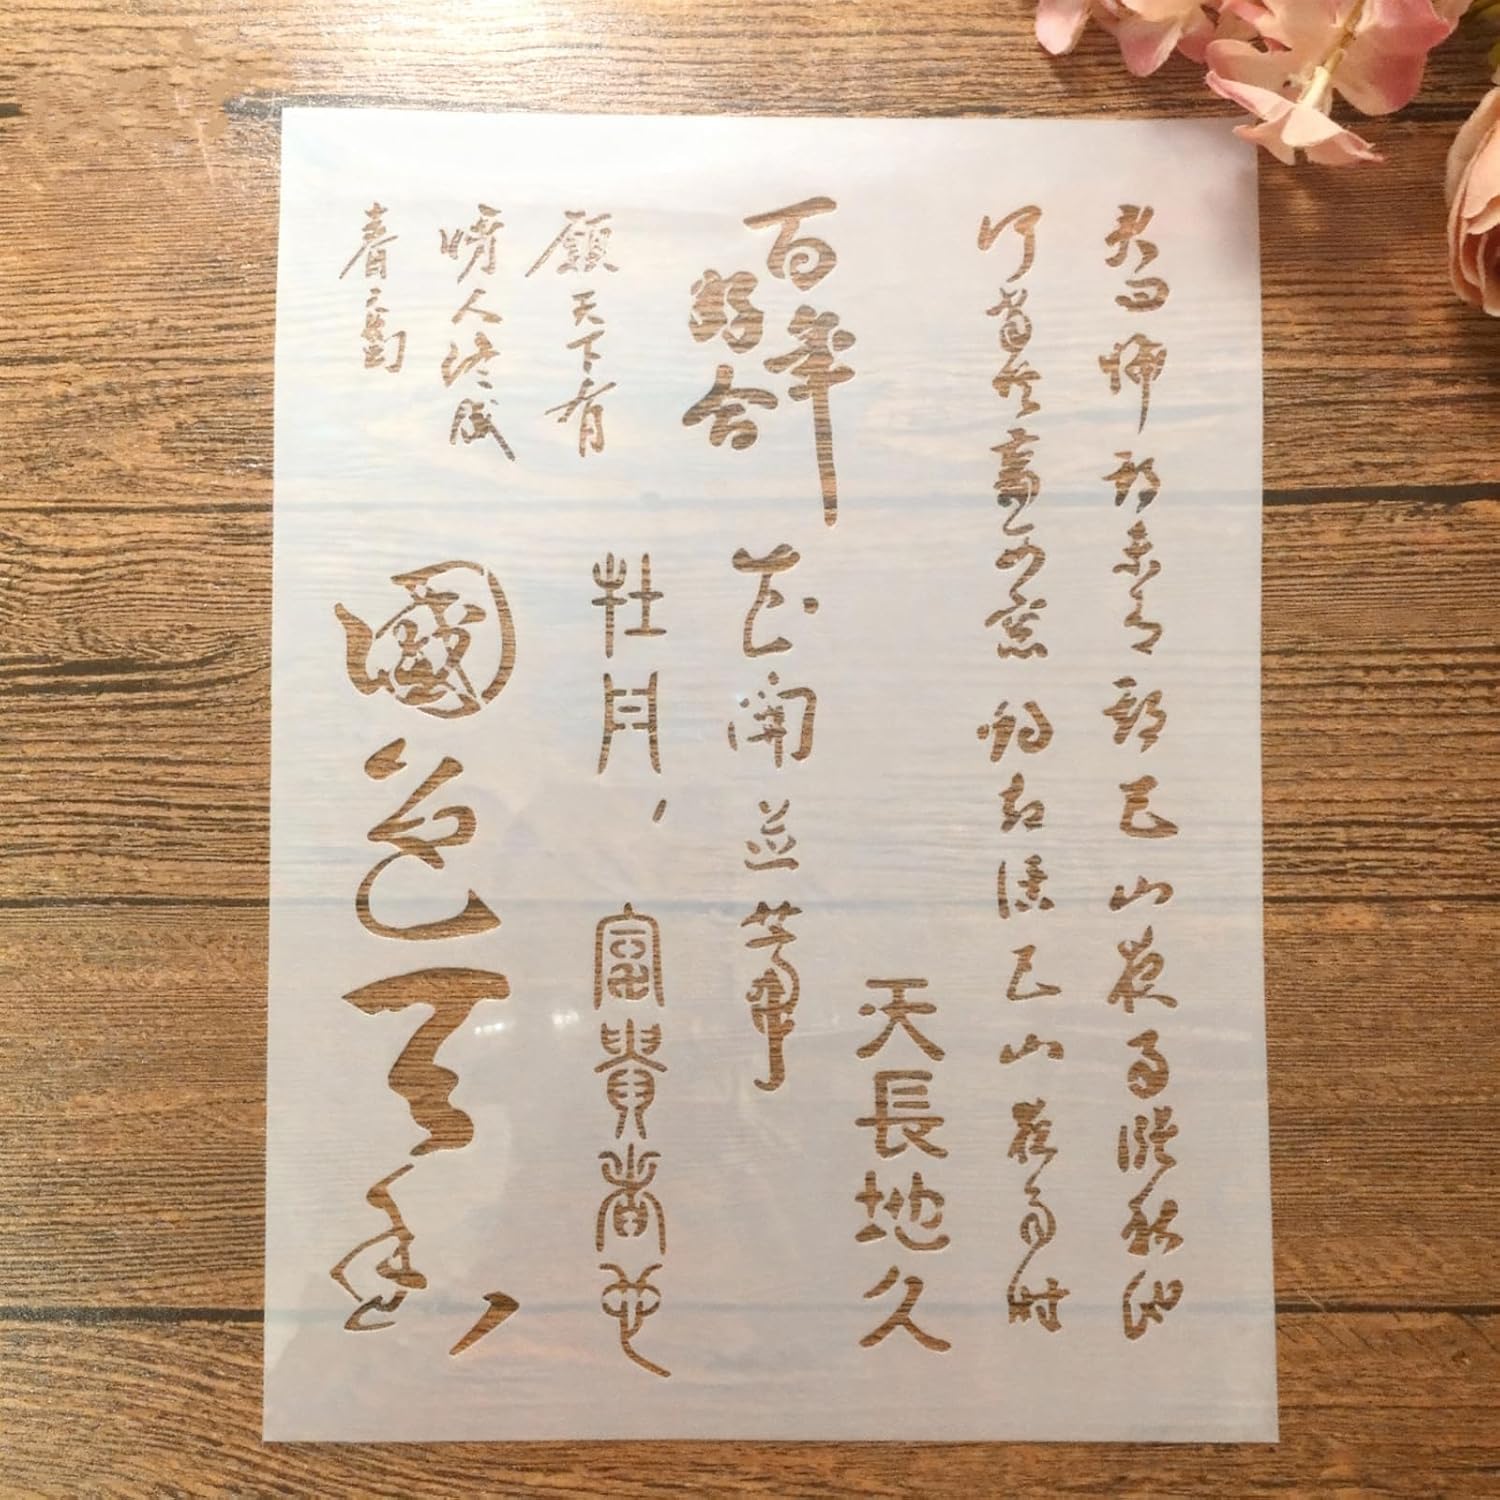 君问归期未有期巴山夜雨涨秋池
何当共剪西窗烛却话巴山夜雨时
天長地久
百年
好合
花開並蒂
牡丹，富貴者也
願天下有
情人終成
眷屬
國色天香